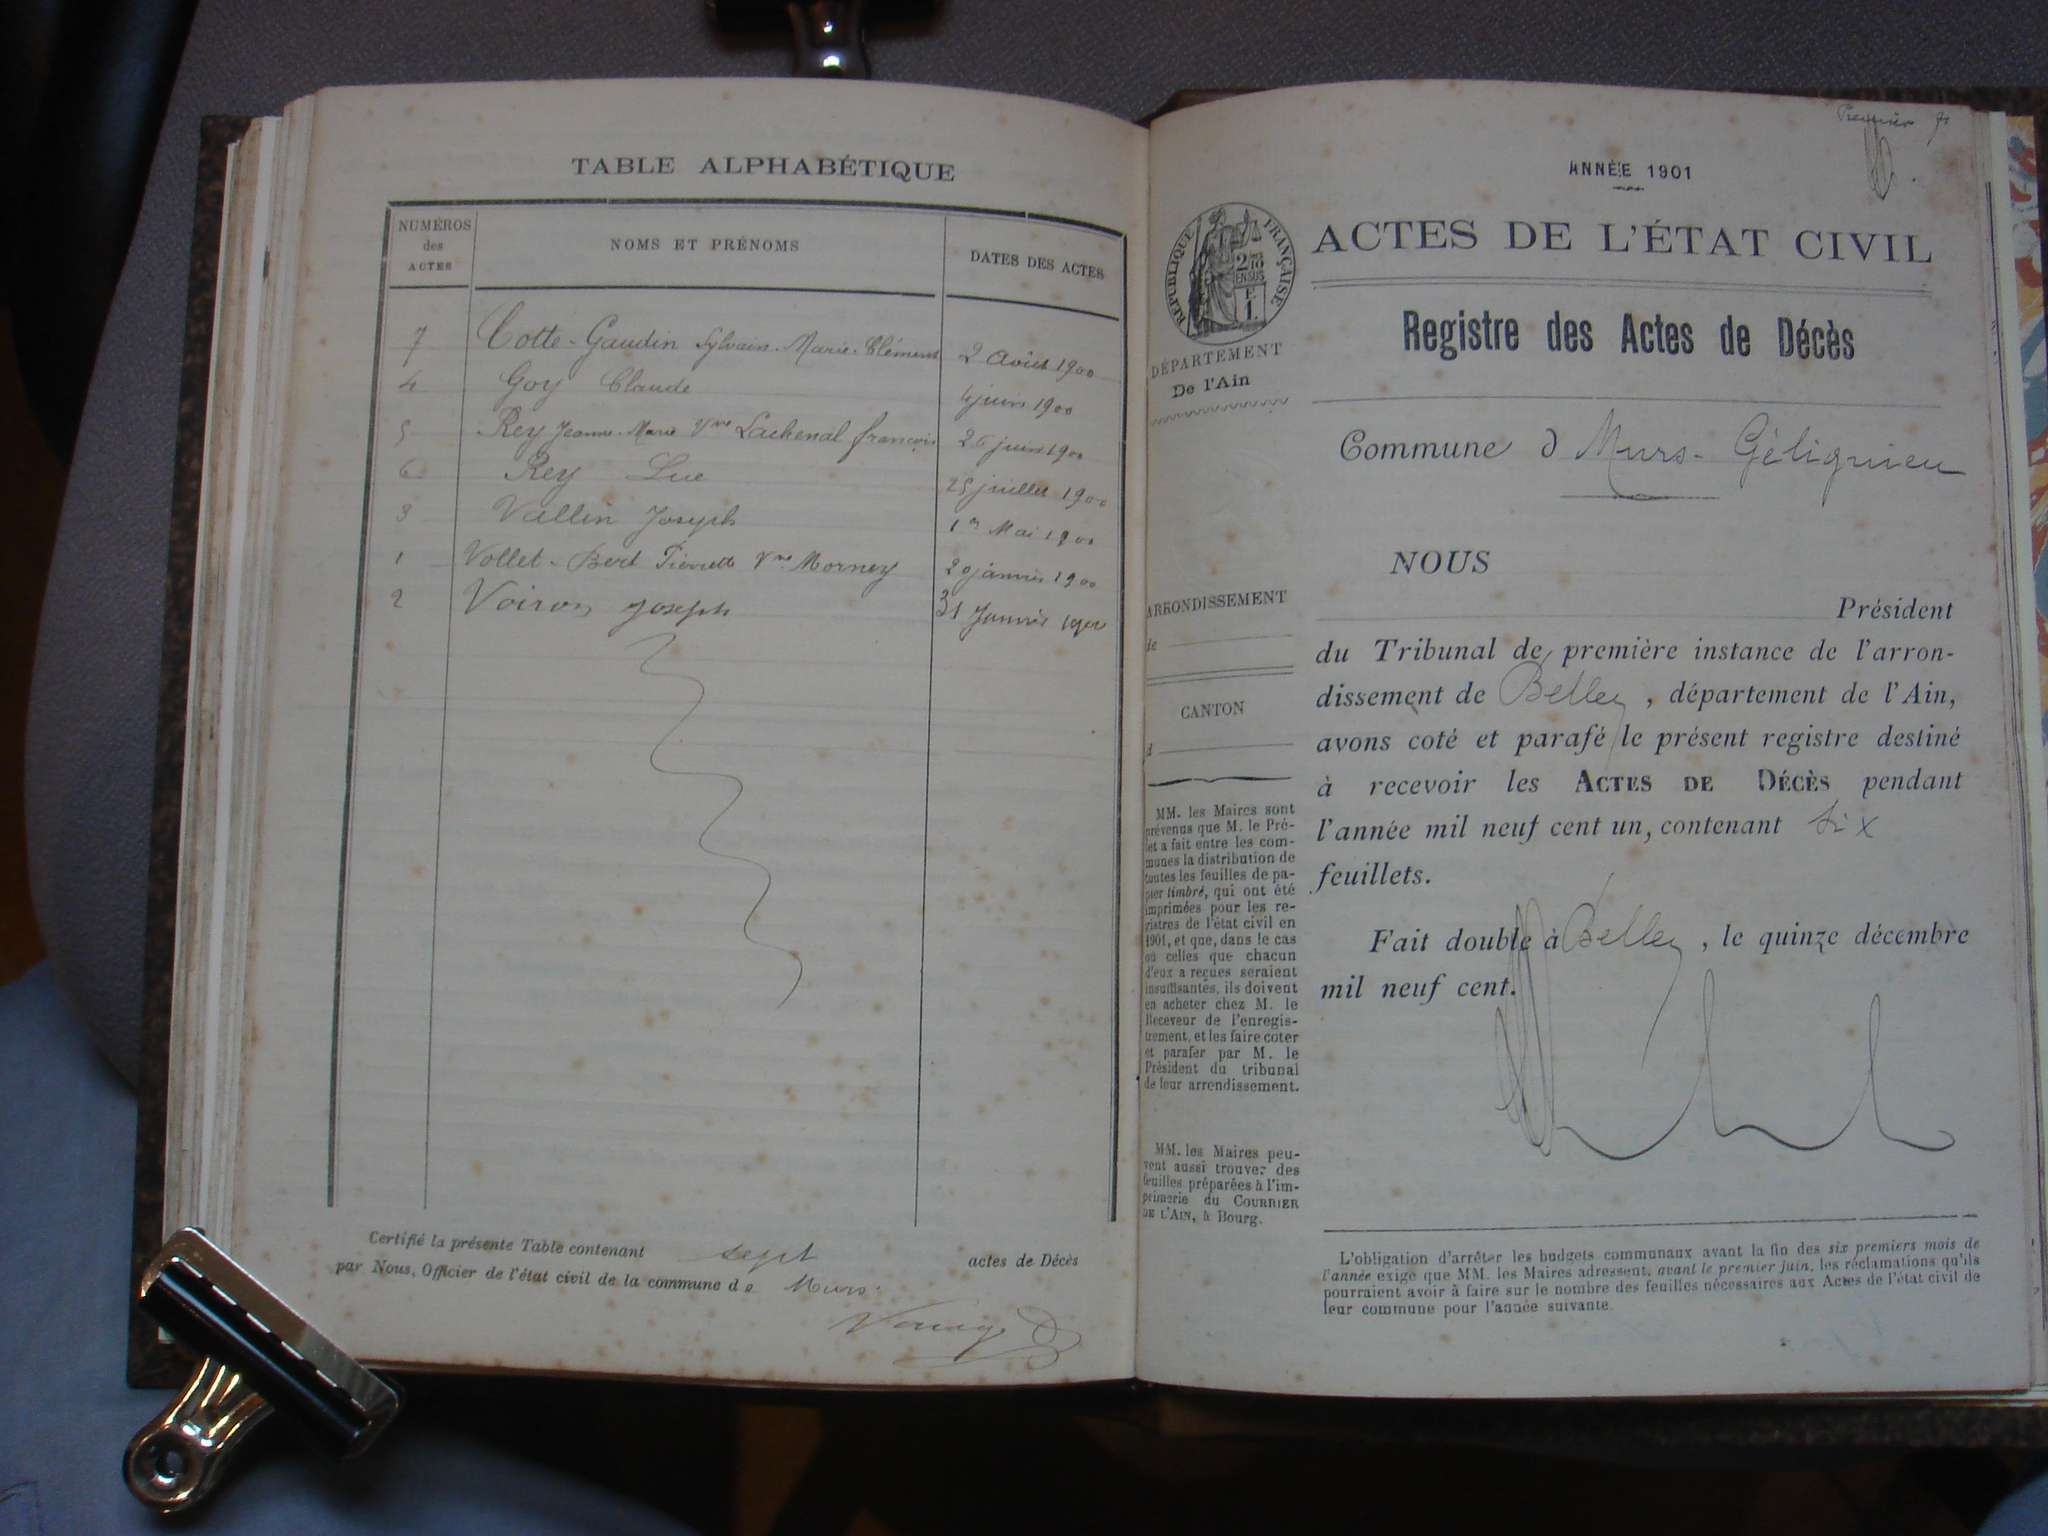 TABLE ALPHABÉTIQUE
NUMÉROS des ACTES
NOMS ET PRÉNOMS
DATES DES ACTES
7 Cotte-Gaudin Sylvain-Marie-Clément 2 Août 1900
4 Goy Claude 4 juin 1900
5 Rey Jeanne-Marie Vve Lachenal françois 26 juin 1900
6 Rey Luc 25 juillet 1900
3 Vallin Joseph 1er Mai 1900
1 Vollet-Bert Pierrette Vve Morney 20 janvier 1900
2 Voiron Joseph 31 Janvier 1900
Certifié la présente Table contenant sept actes de Décès
par Nous, Officier de l'état civil de la commune de Murs.
Premier
ANNÉE 1901
RÉPUBLIQUE FRANÇAISE
2/10
EN SUS
F
1.
ACTES DE L'ÉTAT CIVIL
Registre des Actes de Décès
DÉPARTEMENT
De l'Ain
Commune d Murs-Gélignieu
NOUS
Président
du Tribunal de première instance de l'arron-
dissement de Belley, département de l'Ain,
avons coté et parafé le présent registre destiné
à recevoir les ACTES DE DÉCÈS pendant
l'année mil neuf cent un, contenant six
feuillets.
Fait double à Belley, le quinze décembre
mil neuf cent.
ARRONDISSEMENT
de
CANTON
d
MM. les Maires sont
prévenus que M. le Pré-
fet a fait entre les com-
munes la distribution de
toutes les feuilles de pa-
pier timbré, qui ont été
imprimées pour les re-
gistres de l'état civil en
1901, et que, dans le cas
où celles que chacun
d'eux a reçues seraient
insuffisantes, ils doivent
en acheter chez M. le
Receveur de l'enregis-
trement, et les faire coter
et parafer par M. le
Président du tribunal
de leur arrendissement.
MM. les Maires peu-
vent aussi trouver des
feuilles préparées à l'im-
primerie du COURRIER
DE L'AIN, à Bourg.
L'obligation d'arrêter les budgets communaux avant la fin des six premiers mois de
l'année exige que MM. les Maires adressent, avant le premier juin, les réclamations qu'ils
pourraient avoir à faire sur le nombre des feuilles nécessaires aux Actes de l'état civil de
leur commune pour l'année suivante.